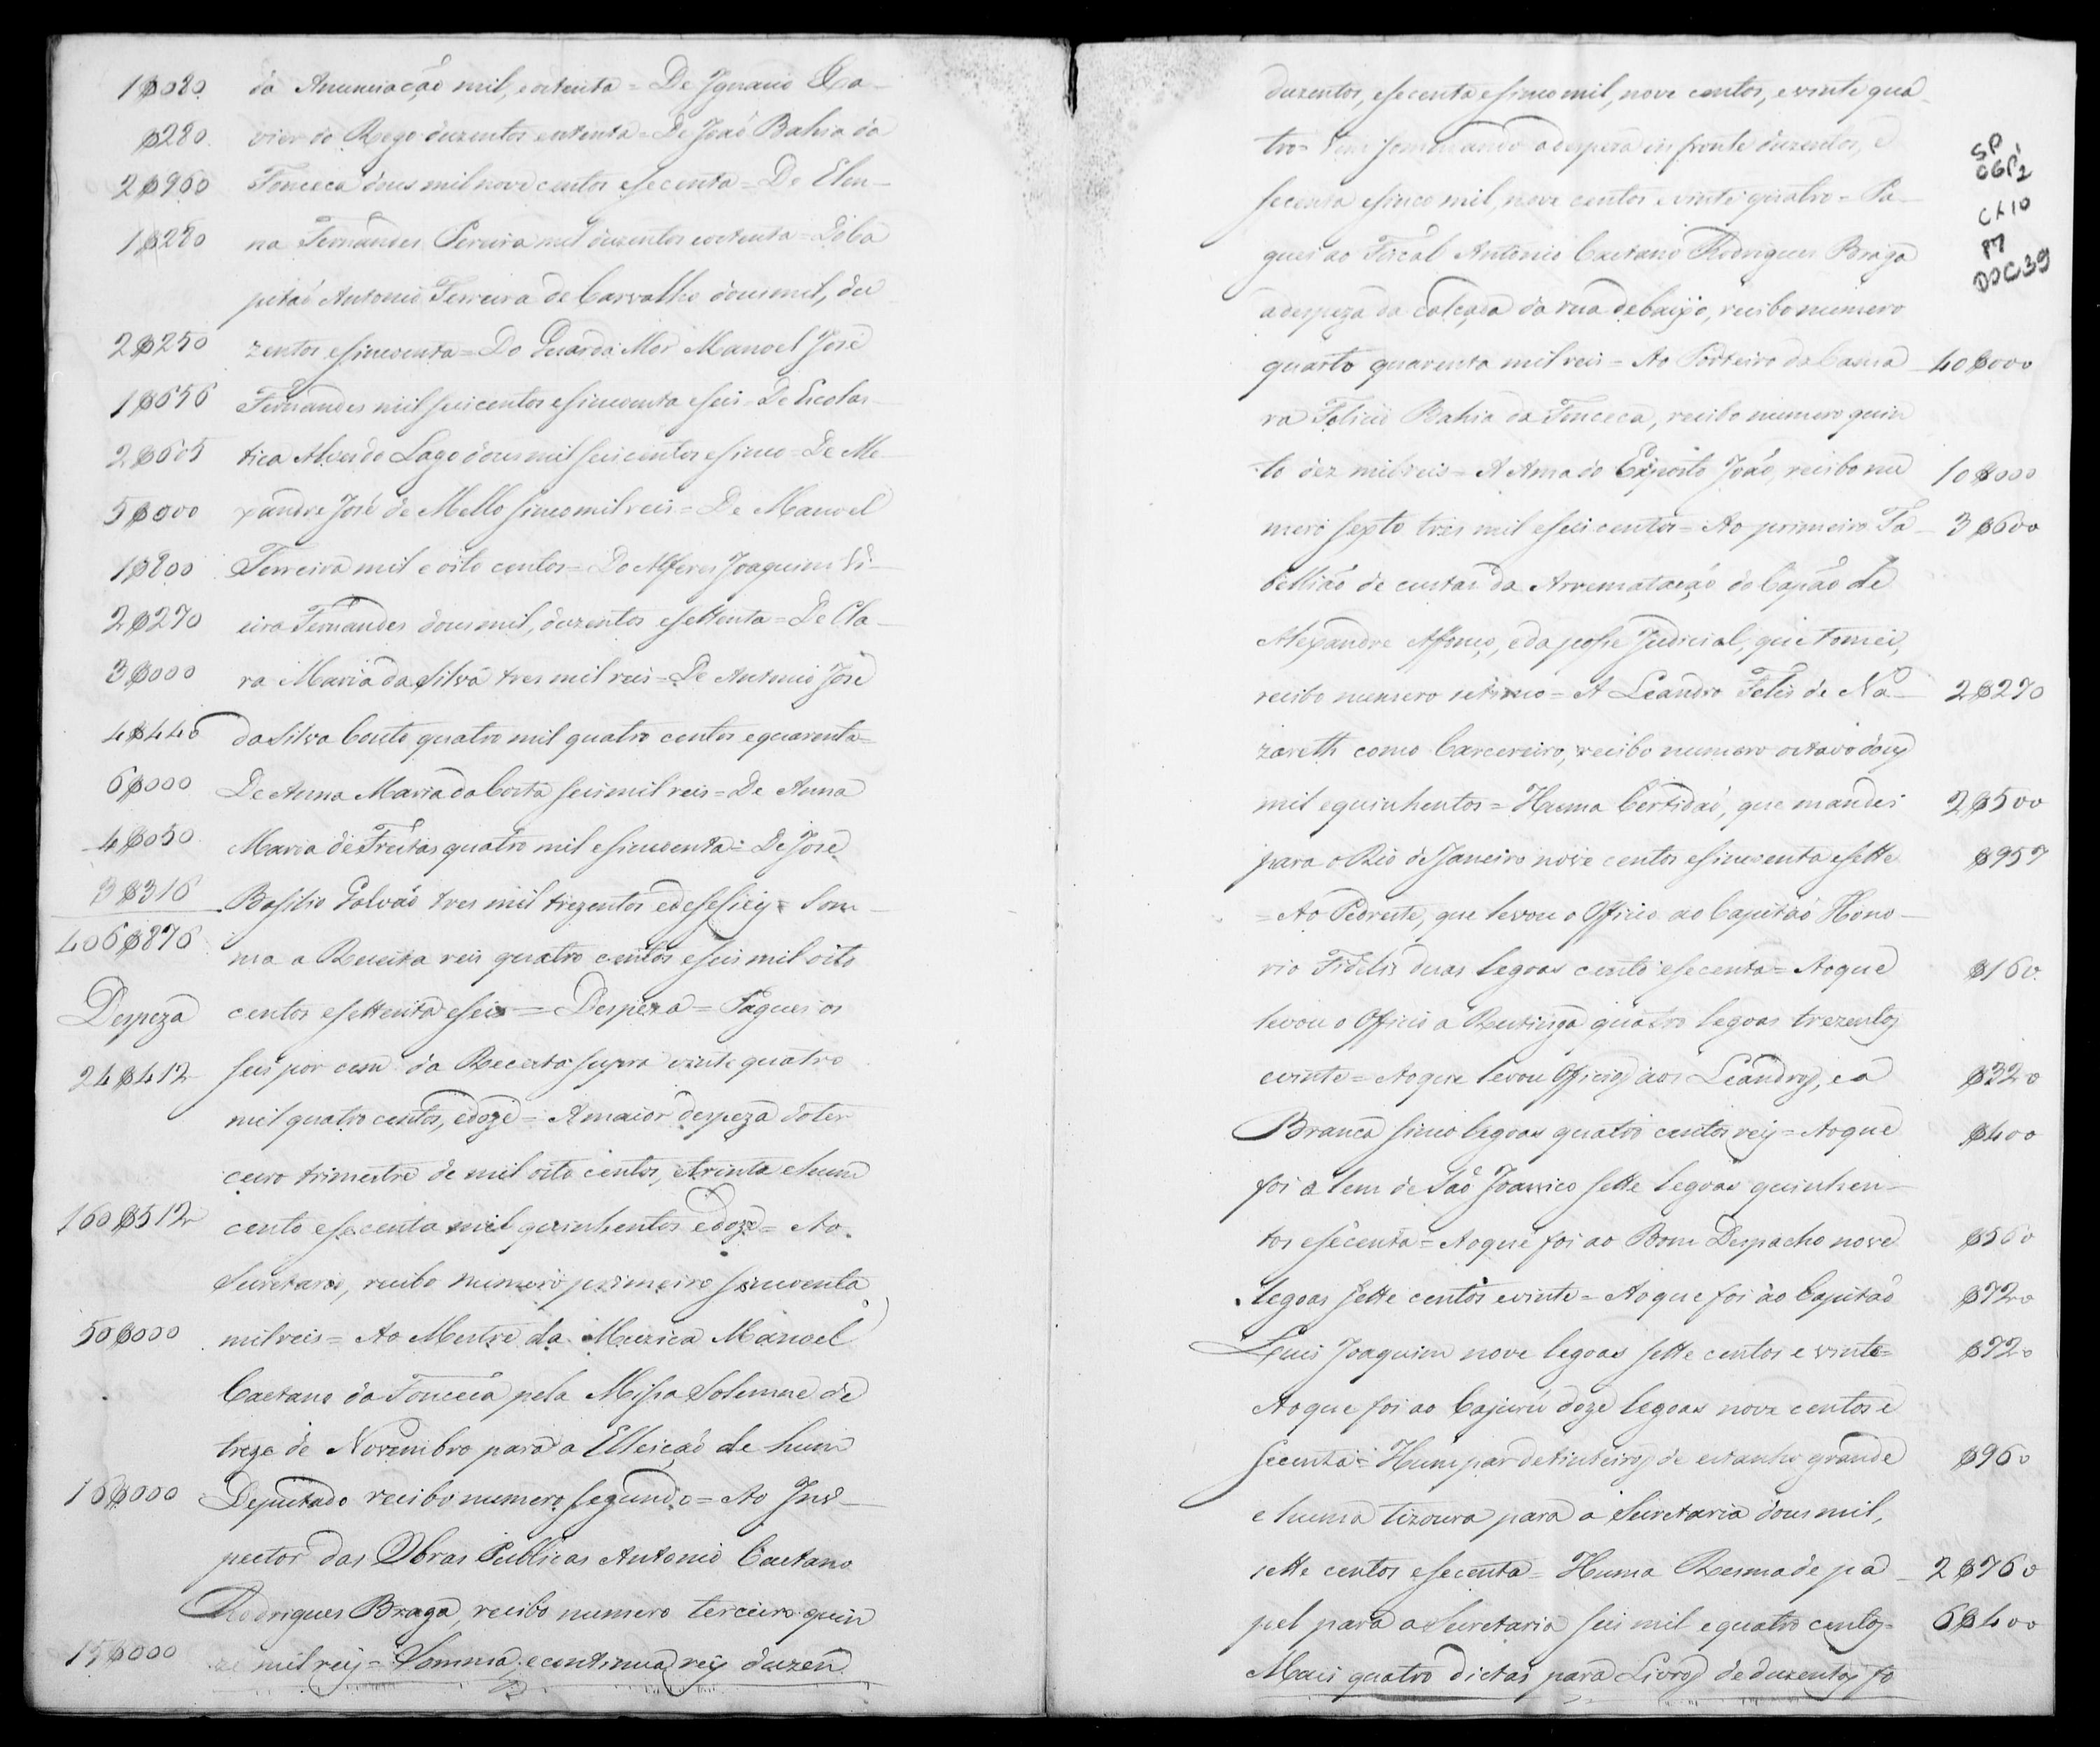 1$080 da Anunciação mil, e oitenta = De Ignacio Xa-
$280 vier do Rego duzentos e oitenta = De João Bahia da
2$960 Fonceca dous mil nove centos e secenta = De Elen-
1$280 na Fernandes Pereira mil duzentos e oitenta = Do Ca
pitaõ Antonio Ferreira de Carvalho dous mil, du
2$250 zentos e sincoenta = Do Guarda Mor Manoel José
1$656 Fernandes mil seis centos e sincoenta e seis = De Escolas
2$605 tica Alves do Lago dous mil seis centos e sinco = De Ale
5$000 xandre José de Mello sinco mil reis = De Manoel
1$800 Ferreira mil e oito centos = Do Alferes Joaquim Vi-
2$270 eira Fernandes dous mil, duzentos e settenta = De Cla-
3$000 ra Maria da Silva tres mil reis = De Antonio José
4$440 da Silva Couto quatro mil quatro centos e quarenta =
6$000 De Anna Maria da Costa seis mil reis = De Anna
4$050 Maria de Freitas quatro mil e sincoenta = De José
3$316 Basilio Galvaõ tres mil trezentos e deseseis = Som-
406$876 ma a Receita reis quatro centos e seis mil oito
Despeza centos e settenta e seis = Despeza = Paguei os
24$412 seis por cem da Receita supra vinte quatro
mil quatro centos, e doze = A maior despeza do ter
ceiro trimestre de mil oito centos, e trinta e hum
160$512 cento e secenta mil quinhentos e doze = Ao
Secretario, recibo numero primeiro sincoenta
50$000 mil reis = Ao Mestre da Muzica Manoel
Caetano da Fonceca pela Missa Solemne de
treze de Novembro para a Elleiçaõ de hum
16$000 Deputado recibo numero segundo = Ao Ins-
pector das Obras Publicas Antonio Caetano
Rodrigues Braga, recibo numero terceiro quin
15$000 ze mil reis = Somma, e continua reis duzen
duzentos, e secenta e sinco mil, nove centos, e vinte qua-
tro = Vem sommando a despeza em fronte duzentos, e
secenta e sinco mil, nove centos e vinte quatro = Pa-
guei ao Fiscal Antonio Caetano Rodrigues Braga
a despeza da calçada da rua debaixo, recibo numero
quarto quarenta mil reis = Ao Porteiro da Cama- 40$000
ra Felicio Bahia da Fonceca, recibo numero quin
to dez mil reis = A Ama do Exposto João, recibo nu 10$000
mero sexto tres mil e seis centos = Ao primeiro Ta- 3$600
belliaõ de custas da Arrematação do Capão de
Alexandre Affonço, e da posse Judicial, que tomei,
recibo numero setimo = A Leandro Felis de Na- 2$270
zareth como Carcereiro, recibo numero octavo dous
mil e quinhentos = Huma Certidaõ, que mandei 2$500
para o Rio de Janeiro nove centos e sincoenta e sette $957
= Ao Pedreste, que levou o Officio ao Capitaõ Hono-
rio Fidelis duas legoas cento e secenta = Ao que $160
levou o Officio a quatro legoas trezentos
e vinte = Ao que levou Officios aos Leandros, e a $320
Branca sinco legoas quatro centos reis = Ao que $400
foi a lem de São Joanico sette legoas quinhen-
tos e secenta = Ao que foi ao Bom Despacho nove $560
legoas sette centos e vinte = Ao que foi ao Capitaõ $720
Luis Joaquim nove legoas sette centos e vinte = $720
Ao que foi ao Cajurú doze legoas nove centos e
secenta = Hum par de tinteiros de estanho grande $960
e huma tizoura para a Secretaria dous mil,
sette centos e secenta = Huma Resma de pa- 2$760
pel para a Secretaria seis mil e quatro centos = 6$400
Mais quatro dictas para Livros de duzentos fo
SP
CGP2
CX10
P7
DOC39